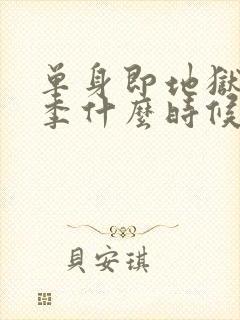 單身即地獄
季什麼時候
貝安琪